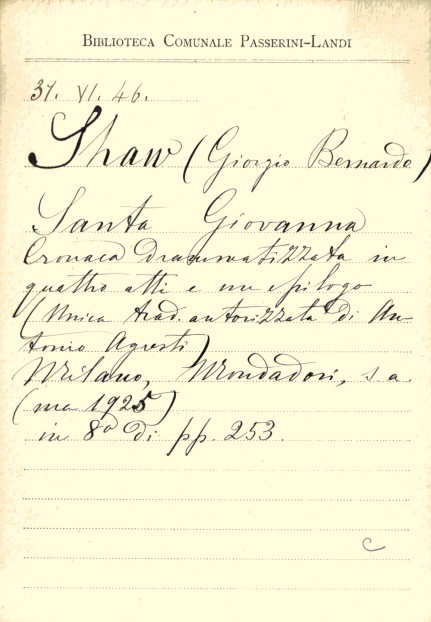 BIBLIOTECA COMUNALE PASSERINI-LANDI
31. VI. 46.
Shaw (Giorgio Bernardo)
Santa Giovanna
Cronaca drammatizzata in
quattro atti e un epilogo
(Unica trad. autorizzata di An-
tonio Agresti)
Milano, Mondadori, s. a.
(ma 1925)
in 8° di pp. 253.
C